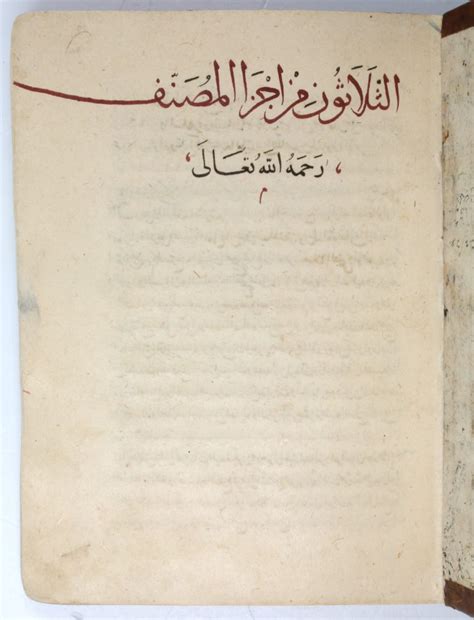 الثَّلَاثُونَ مِنْ اَجْزَا المُصَنِّف
رَحِمَهُ اللّٰهُ تَعَالَى